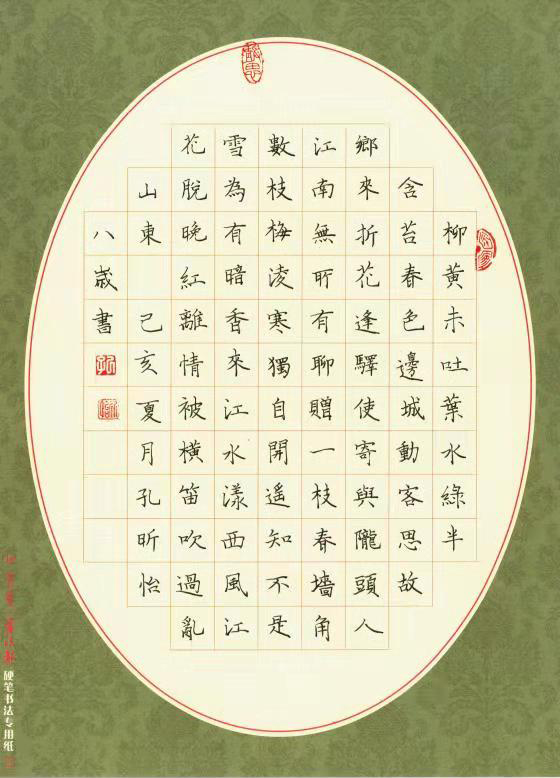 柳黃未吐葉水綠半
含苔春色邊城動客思故
鄉來折花逢驛使寄與隴頭人
江南無所有聊贈一枝春墻角
數枝梅淩寒獨自開遥知不是
雪為有暗香來江水漾西風江
花脫晚紅離情被橫笛吹過亂
山東 己亥夏月孔昕怡
八歲書
硬笔书法专用纸